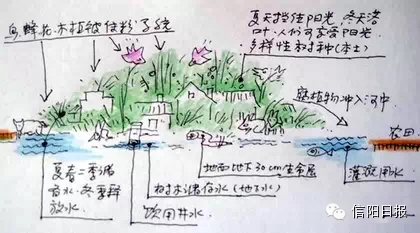 鸟、蜂、花、木植被传粉系统
夏天挡住阳光,冬天落
叶,人们可享受阳光.
多样性树种(本土)
死植物冲入河中
农田
夏春二季满
容水.冬季释
放水.
树木满保水(地下水)
饮用井水
地面地下30cm生命层
灌溉用水
信阳日报